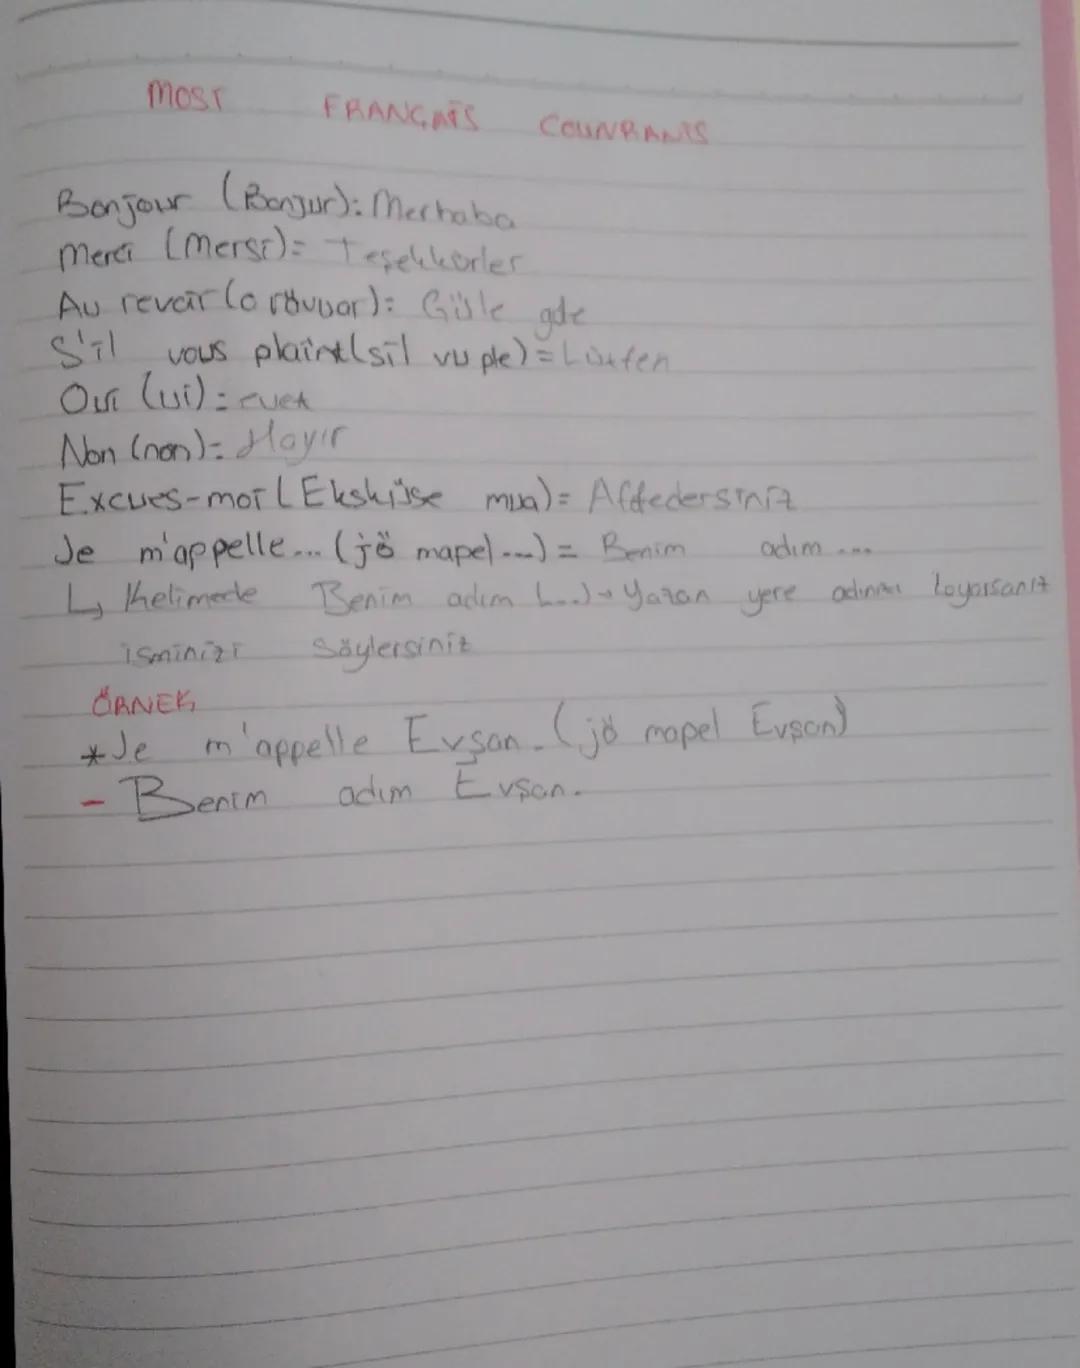 MOST FRANÇAİS COUNRANTS
Bonjour (Bonjur): Merhaba
Merci (Mersi)= Teşekkürler
Au revoir (o rövuar): Güle gde
S'il vous plaint (sil vu ple) = Lütfen
Oui (ui) = evet
Non (non)= Hayır
Excues-moi (Eksküse mua)= Affedersiniz
Je m'appelle... (jö mapel ...) = Benim adım ...
↳ Kelimede Benim adım (...) → Yazan yere koyarsanız
isminizi söylersiniz
ÖRNEK
* Je m'appelle Evşan. (jö mapel Evşan)
- Benim adım Evşan.